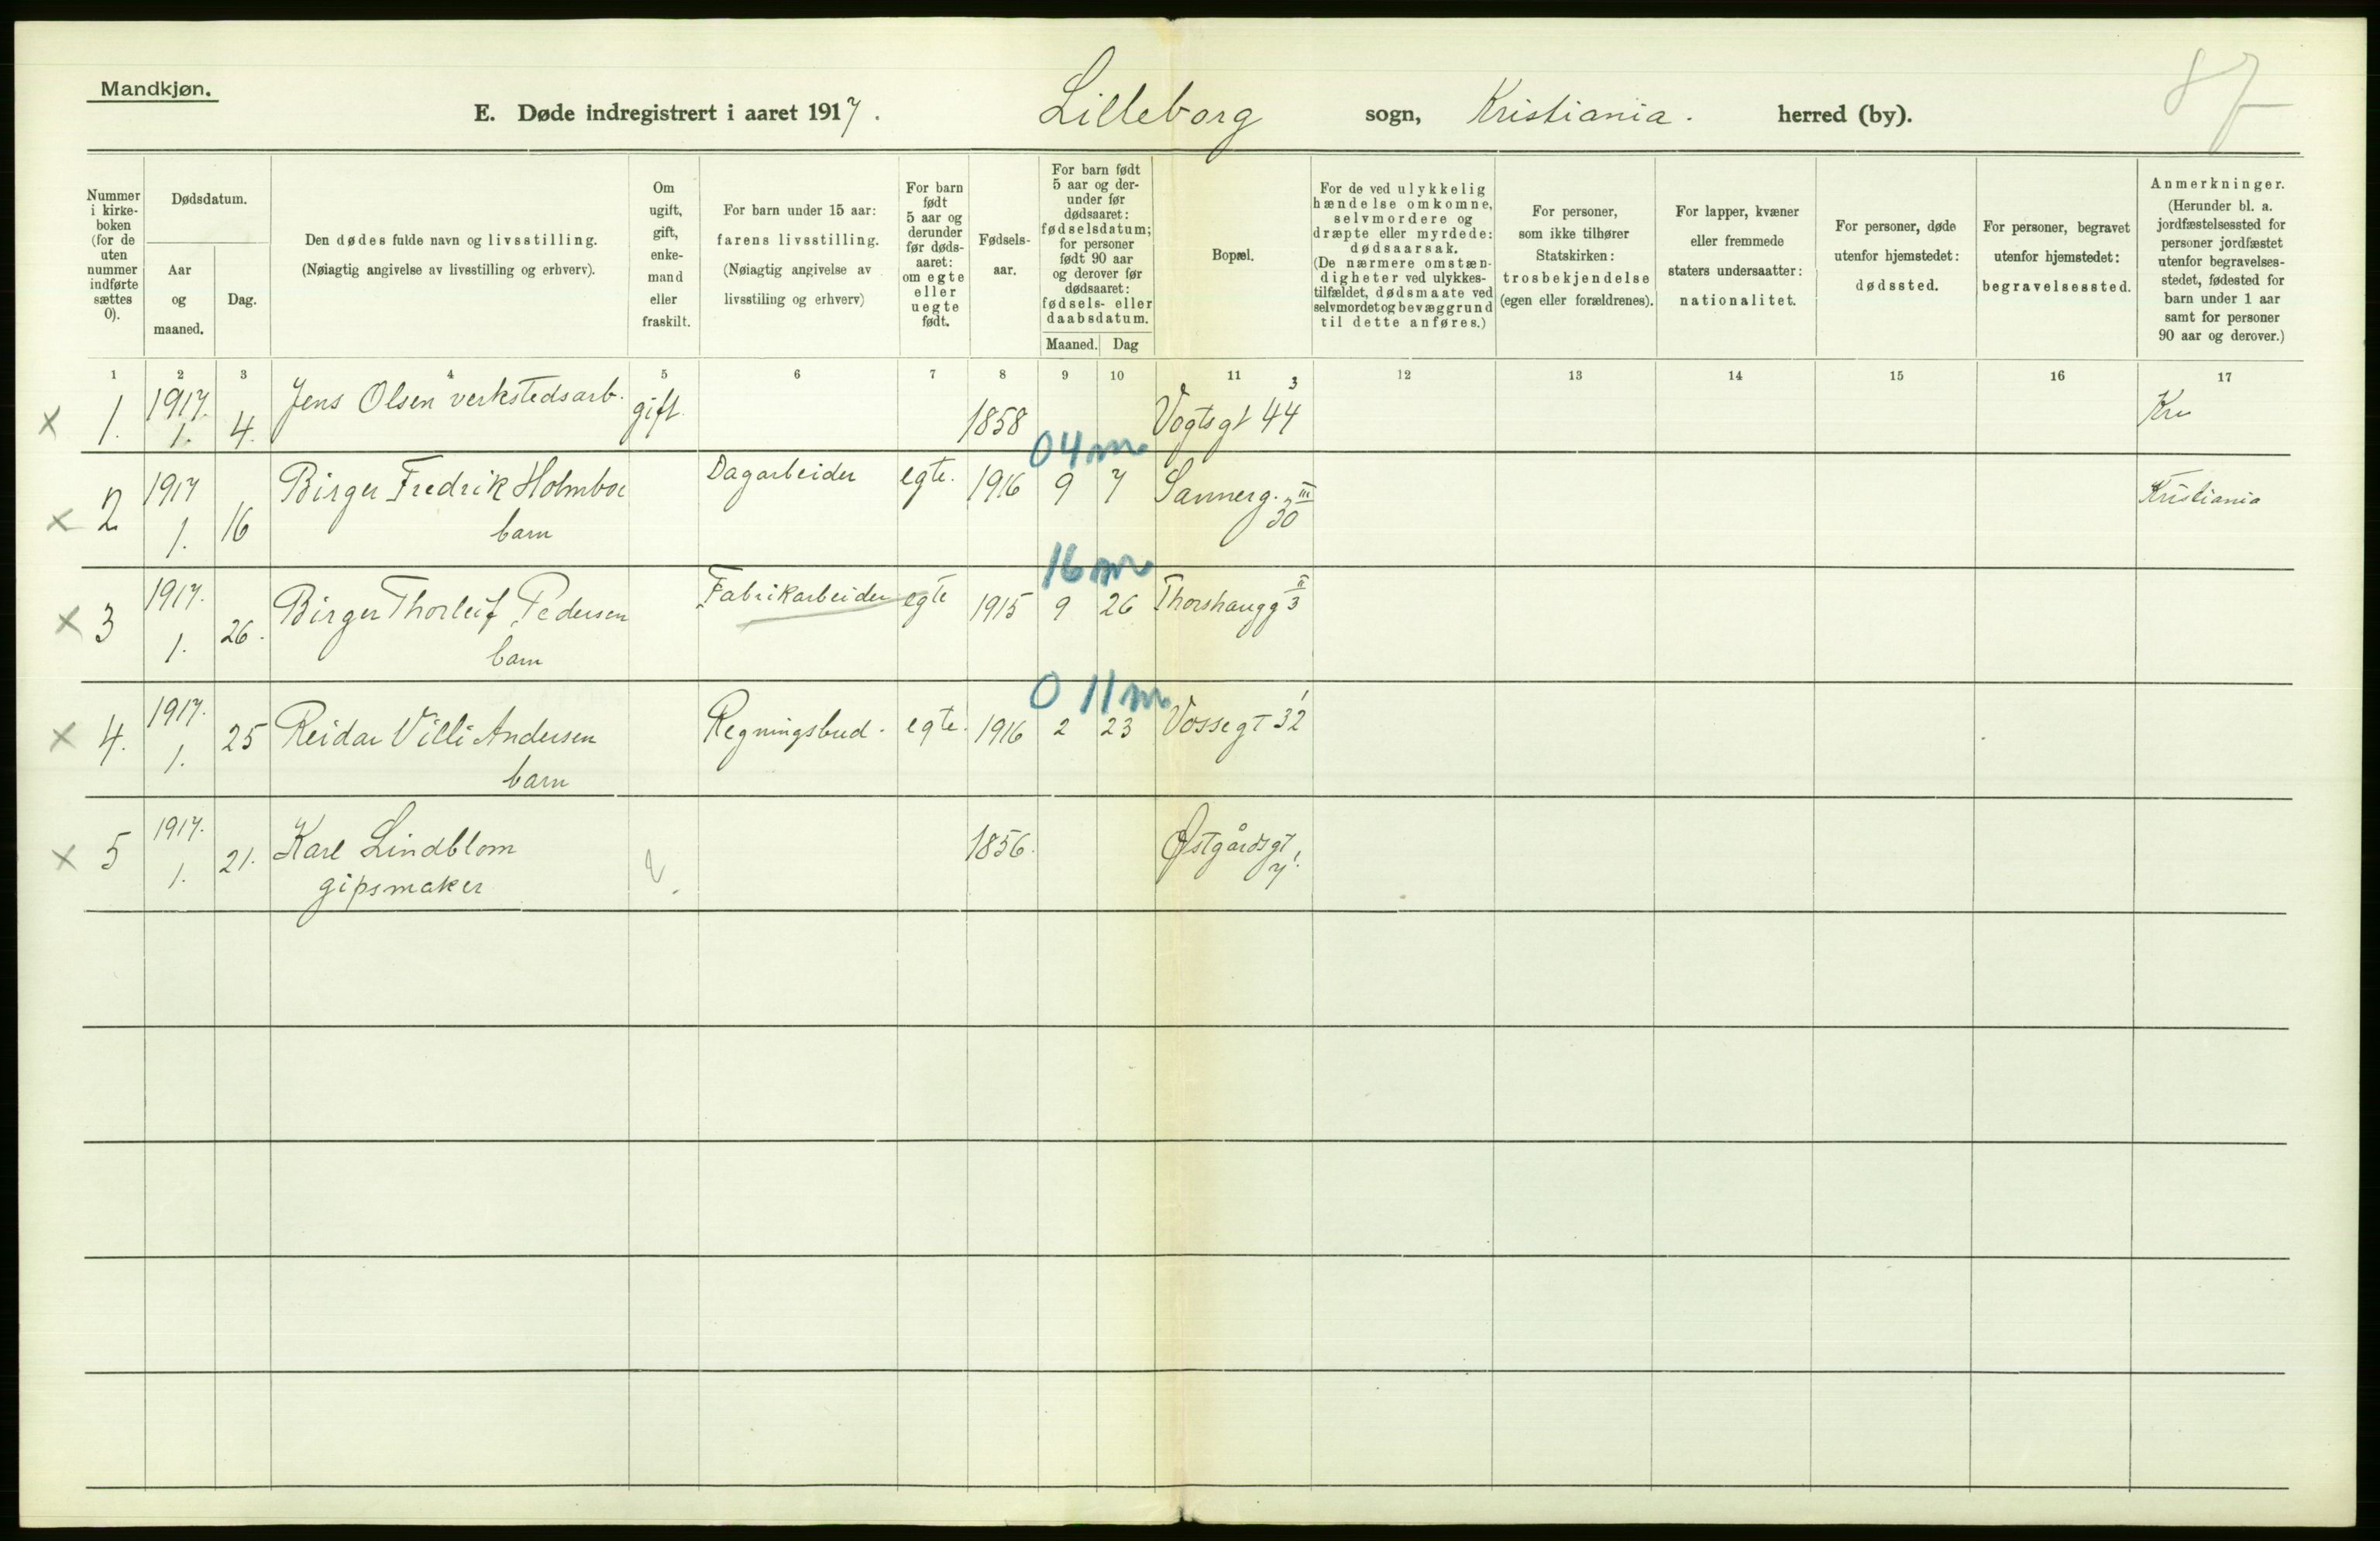 Mandkjøn.
E. Døde indregistrert i aaret 1917. Lilleborg sogn, Kristiania. herred (by).
87
Nummer
i kirke-
boken
(for de
uten
nummer
indførte
sættes
0).
Dødsdatum.
Aar
og
maaned.
Dag.
Den dødes fulde navn og livsstilling.
(Nøiagtig angivelse av livsstilling og erhverv).
Om
ugift,
gift,
enke-
mand
eller
fraskilt.
For barn under 15 aar:
farens livsstilling.
(Nøiagtig angivelse av
livsstiling og erhverv)
For barn
født
5 aar og
derunder
før døds-
aaret:
om egte
eller
uegte
født.
Fødsels-
aar.
For barn født
5 aar og der-
under før
dødsaaret:
fødselsdatum;
for personer
født 90 aar
og derover før
dødsaaret:
fødsels- eller
daabsdatum.
Maaned. Dag
Bopæl.
For de ved ulykkelig
hændelse omkomne,
selvmordere og
dræpte eller myrdede:
dødsaarsak.
(De nærmere omstæn-
digheter ved ulykkes-
tilfældet, dødsmaate ved
selvmordet og bevæggrund
til dette anføres.)
For personer,
som ikke tilhører
Statskirken:
trosbekjendelse
(egen eller forældrenes).
For lapper, kvæner
eller fremmede
staters undersaatter:
nationalitet.
For personer, døde
utenfor hjemstedet:
dødssted.
For personer, begravet
utenfor hjemstedet:
begravelsessted.
Anmerkninger.
(Herunder bl. a.
jordfæstelsessted for
personer jordfæstet
utenfor begravelses-
stedet, fødested for
barn under 1 aar
samt for personer
90 aar og derover.)
1 2 3 4 5 6 7 8 9 10 11 12 13 14 15 16 17
x 1. 1917. 1. 4. Jens Olsen verkstedsarb. gift. 1858 Vogtsgt 44 3 Kra
04 m
x 2 1917 1. 16 Birger Fredrik Holmboe Dagarbeider egte. 1916 9 7 Sannerg. 30 III Kristiania
barn
16 m
x 3 1917. 1. 26. Birger Thorleif Pedersen Fabrikarbeider egte 1915 9 26 Thorshaugg 3 II
barn
0 11 m
x 4. 1917. 1. 25 Reidar Villi Andersen Regningsbud. egte. 1916 2 23 Vossegt 32
barn
x 5 1917. 1. 21. Karl Lindblom 1856. Østgårdsgt 7
gipsmaker